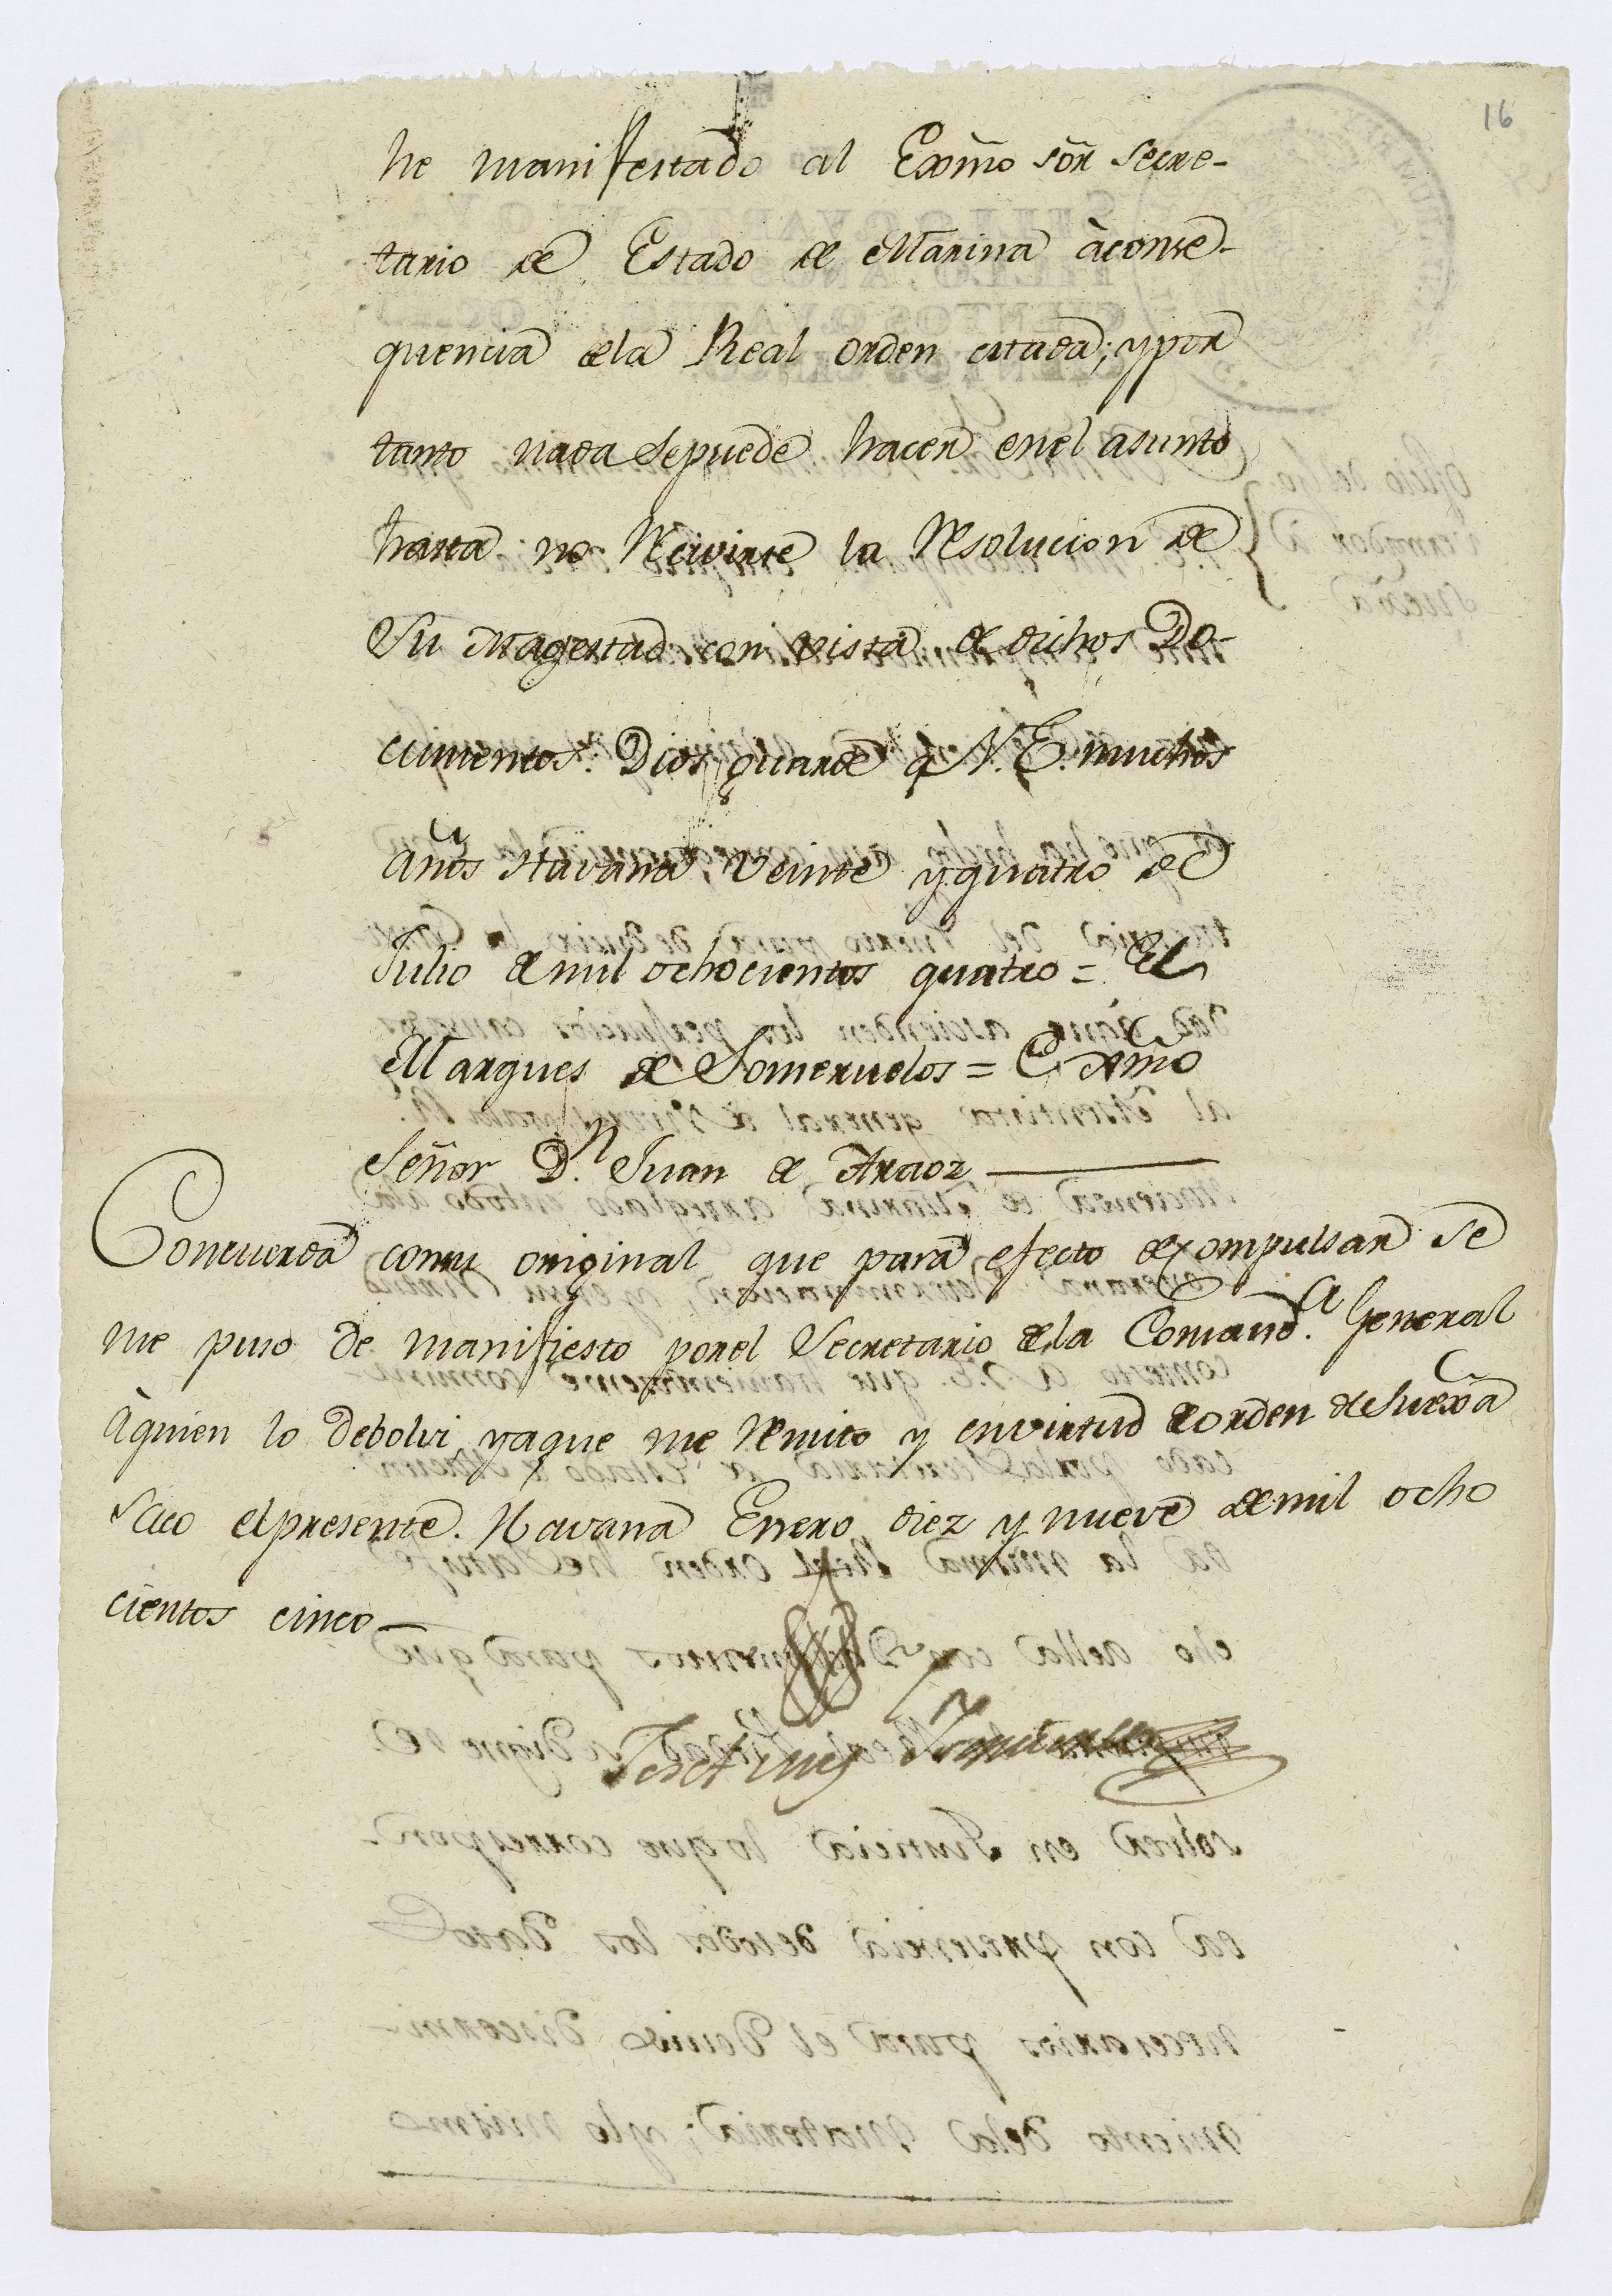 16
he manifestado al Exmo̅ So̅r Secre-
tario de Estado de Marina àconse-
quencia dela Real orden citada; ypor
tanto nada Sepuede hacer enel asunto
hasta no Recivirse la Resolucion de
Su Magestad con vista de dichos Do-
cumentos. Dios guarde a V. E. muchos
años Havana, Veinte y quatro de
Julio de mil ochocientos quatro = El
Marques de Someruelos = Exmo̅
Señor D.n Juan de Araoz
Concuerda consu original que para efecto de compulsar se
me puso de manifiesto porel Secretario dela Comand.a General
àquien lo debolvi yaque me Remito y envirtud de orden de Suexa̅
saco elpresente. Havana Enero diez y nueve de mil ocho
cientos cinco